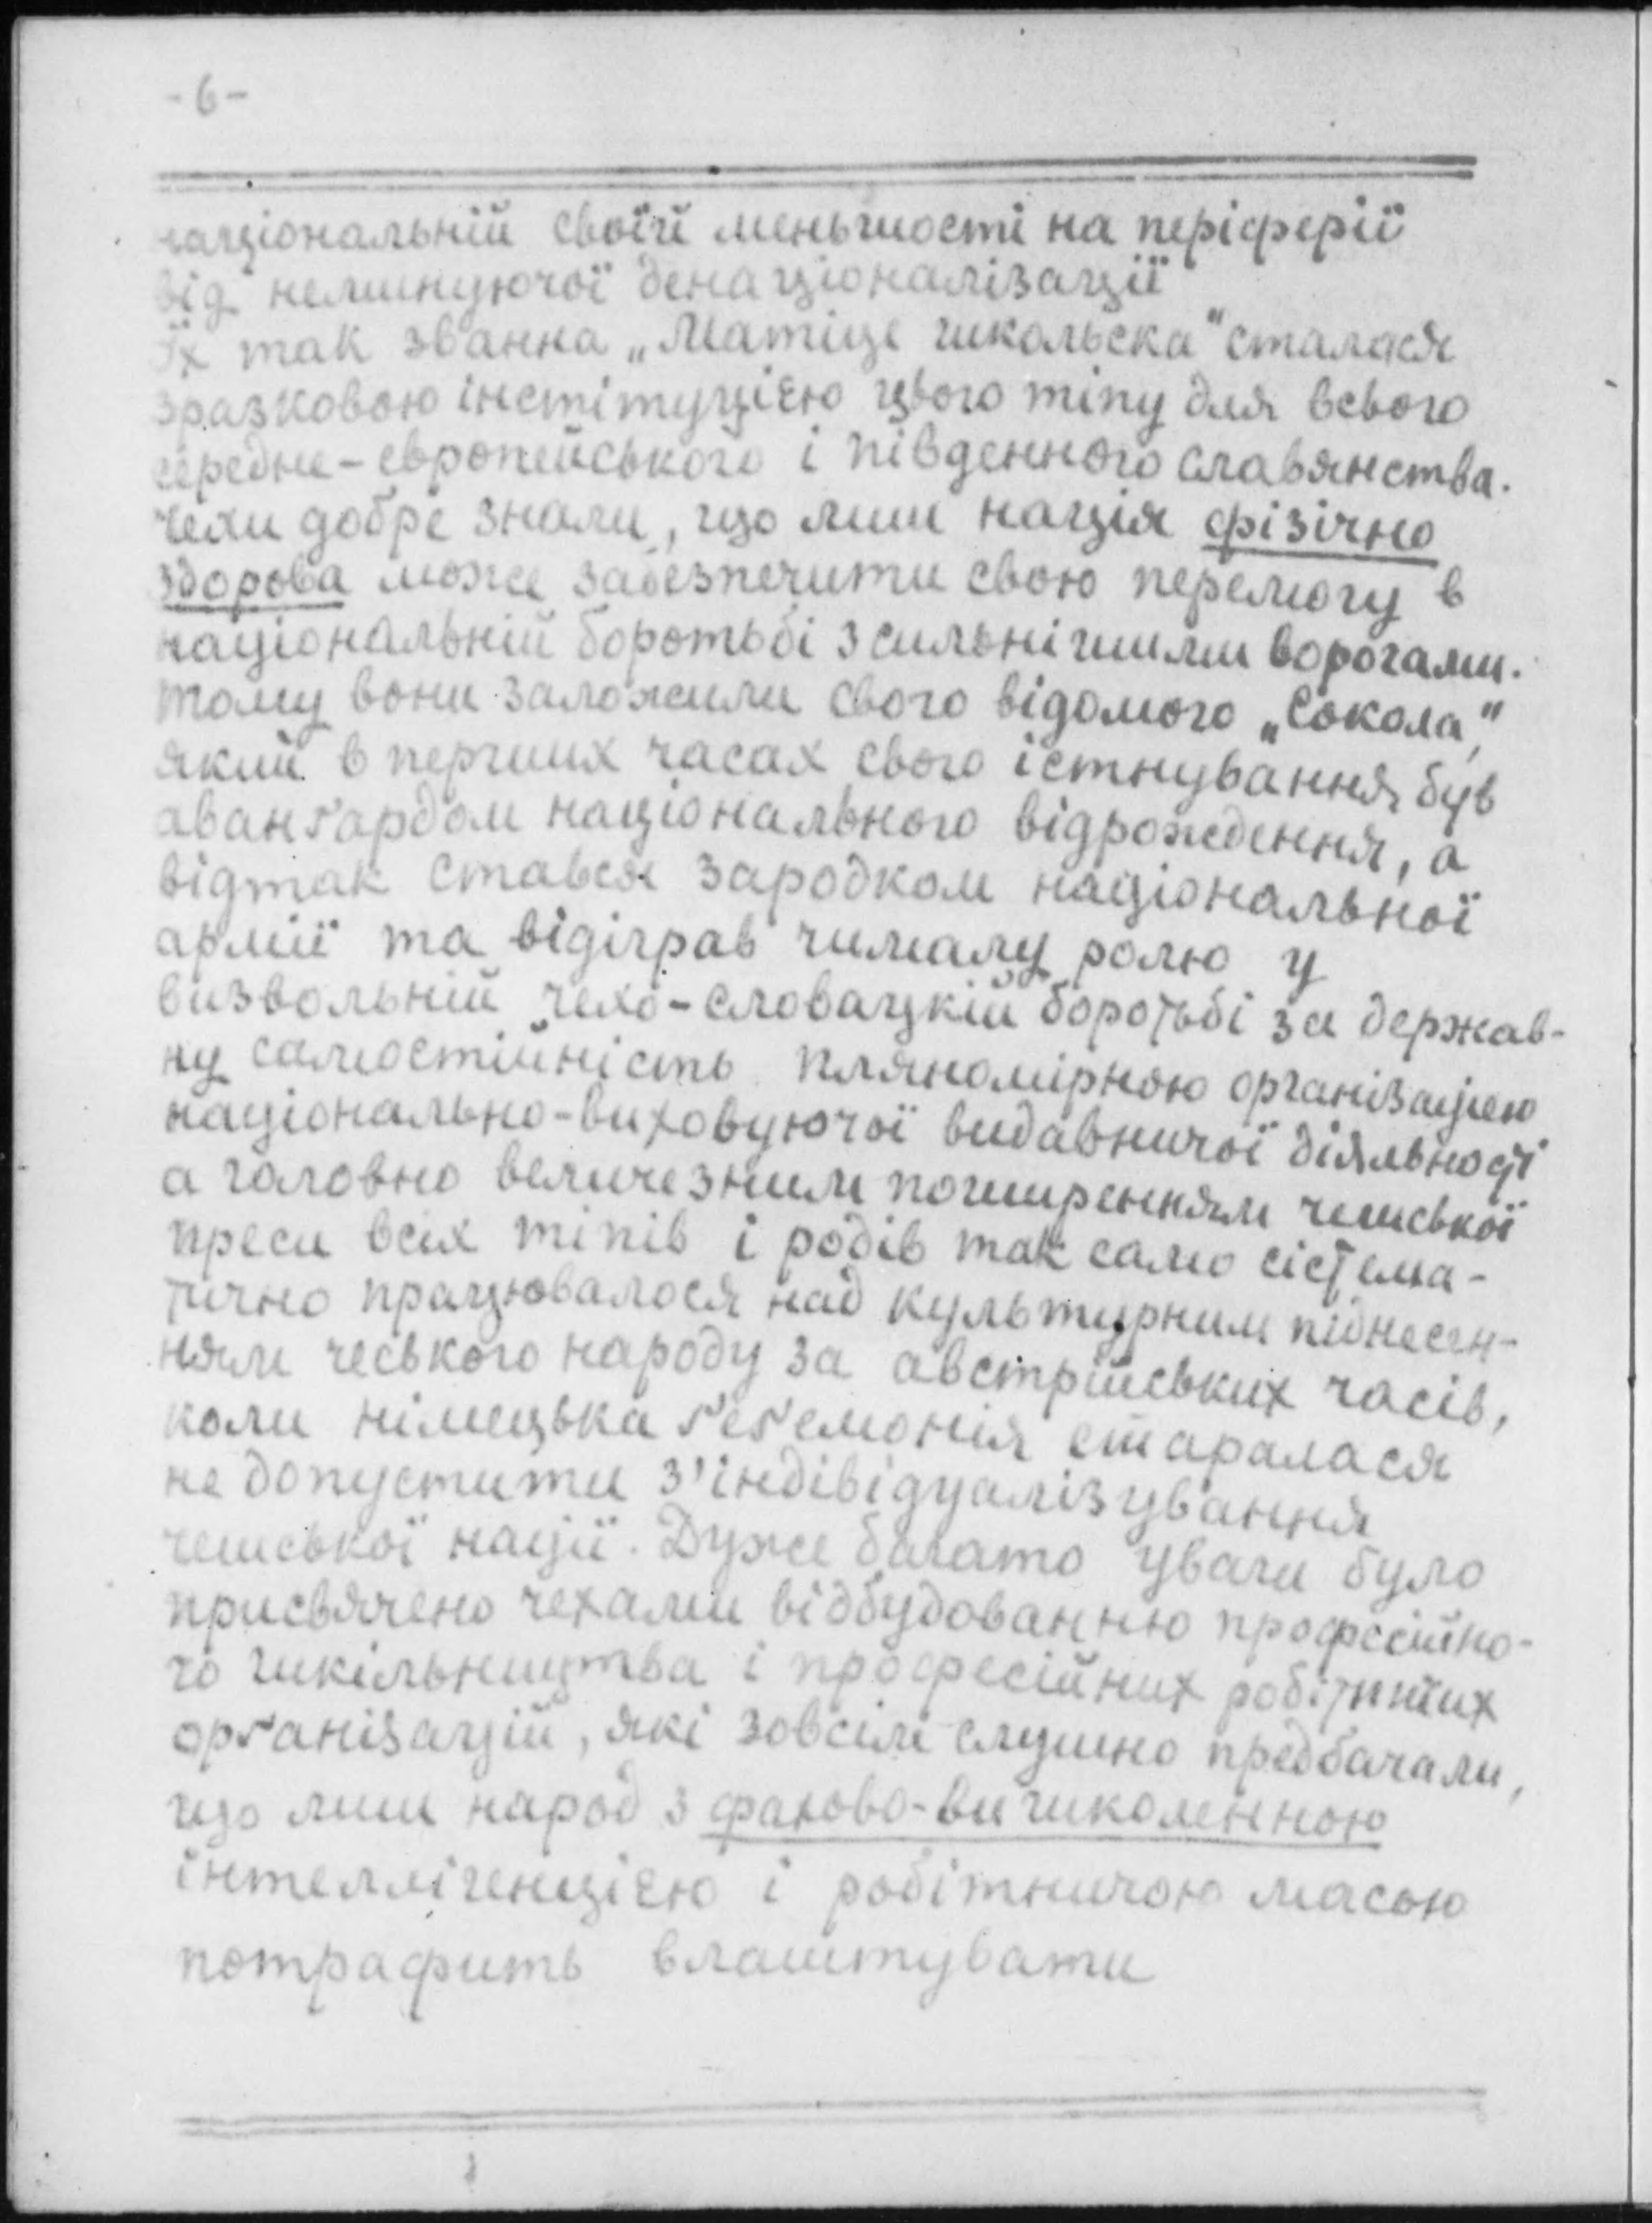 -6-
національній своїй меньшости на періферії
від неминуючої денаціоналізації
Їх так званна „Матіце школьска" сталася
зразковою інстітуцією цього тіпу для всього
середне-европейського і південного славянства.
Чехи добре знали, що лиш нація фізічно
здорова може забезпечити свою перемогу в
національній боротьбі з сильнішими ворогами.
Тому вони заложили свого відомого „Сокола",
який в перших часах свого істнування був
аванґардом національного відрождення, а
відтак стався зародком національної
армії та відіграв чималу ролю у
визвольній чехо-словацкій боротьбі за держав-
ну самостійність пляномірною організацією
національно-виховуючої видавничої діяльности
а головно величезним поширенням чешської
преси всіх тіпів і родів так само сістема-
тично працювалося над культурним піднесен-
ням чеського народу за австрійських часів,
коли німецька ґеґемонія старалася
не допустити з'індівідуалізування
чешської нації. Дуже багато уваги було
присвячено чехами відбудованню професійно-
го шкільництва і професійних робітничих
орґанізацій, які зовсім слушно предбачали,
що лиш народ з фахово-вишколенною
інтеллігенцією і робітничою масою
потрафить влаштувати